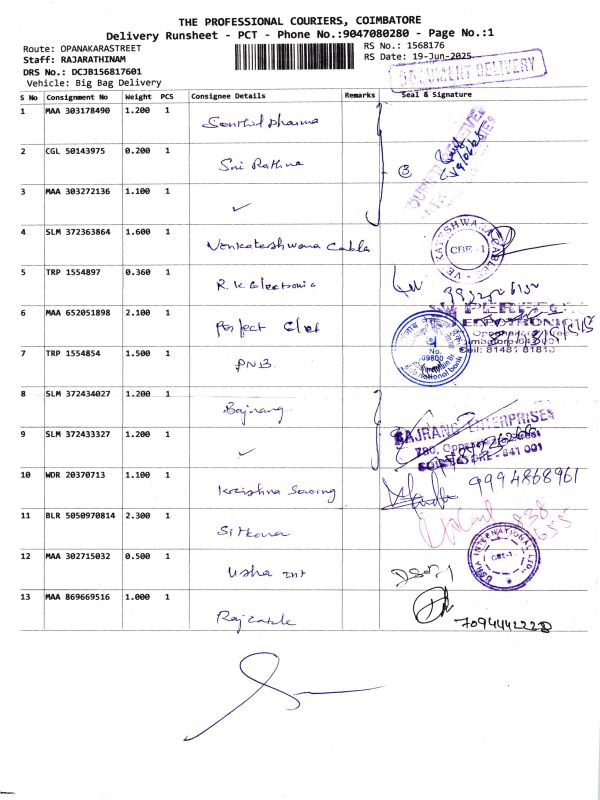 THE PROFESSIONAL COURIERS, COIMBATORE
Delivery Runsheet - PCT - Phone No.:9047080280 - Page No.:1
Route: OPANAKARASTREET
RS No.: 1568176
Staff: RAJARATHINAM
RS Date: 19-Jun-2025
DRS No.: DCJB156817601
DOCUMENT DELIVERY
Vehicle: Big Bag Delivery
S No Consignment No Weight PCS Consignee Details Remarks Seal & Signature
1 MAA 303178490 1.200 1 Senthil pharma
2 CGL 50143975 0.200 1 Sri Rathna
3 MAA 303272136 1.100 1 ✓
4 SLM 372363864 1.600 1 Venkateshwara Cable
CBE - 1
5 TRP 1554897 0.360 1 R.K Electronic
6 MAA 652051898 2.100 1 Perfect Chef
PERFECT
7 TRP 1554854 1.500 1 PNB
No.
09800
national bank
Cell: 81481 81813
8 SLM 372434027 1.200 1 Bajrang
BAJRANG ENTERPRISES
9 SLM 372433327 1.200 1 ✓
COIMBATORE - 641 001
10 WDR 20370713 1.100 1 Krishna Sewing
9994868961
11 BLR 5050970814 2.300 1
12 MAA 302715032 0.500 1 Usha Int
USHA INTERNATIONAL LTD.
CBE-1.
13 MAA 869669516 1.000 1 Raj Cable
7094442228